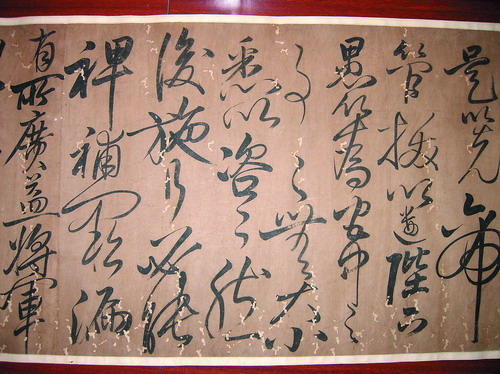 是以先帝
簡拔以遺陛下
愚以為宮中之
事〻無大小
悉以咨之然
後施行必能
裨補闕漏
有所廣益將軍